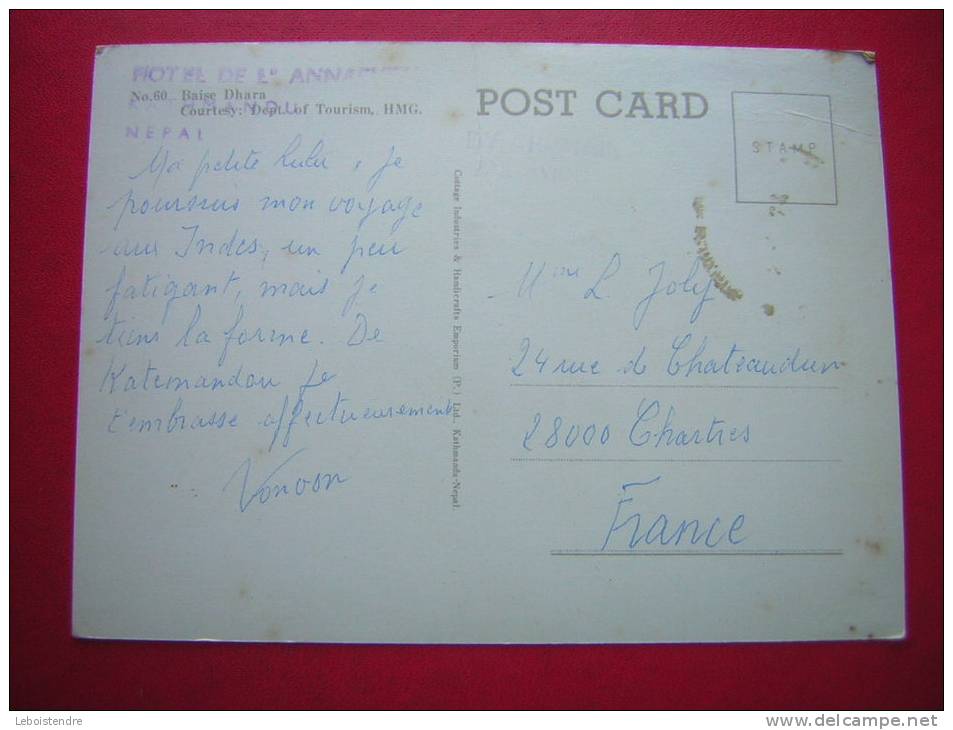 HOTEL DE L' ANNAPURNA
KATHMANDU
NEPAL
No.60 Baise Dhara
Courtesy: Dept. of Tourism, HMG.
POST CARD
STAMP
Ma petite Lulu, je
poursuis mon voyage
aux Indes, un peu
fatigant, mais je
tiens la forme. De
Katemandou je
t'embrasse affectueusement
Cottage Industries & Handicrafts Emporium (P.) Ltd., Kathmandu-Nepal.
Mme L. Joly
24 rue de Chateaudun
28000 Chartres
France
Leboistendre
www.delcampe.net